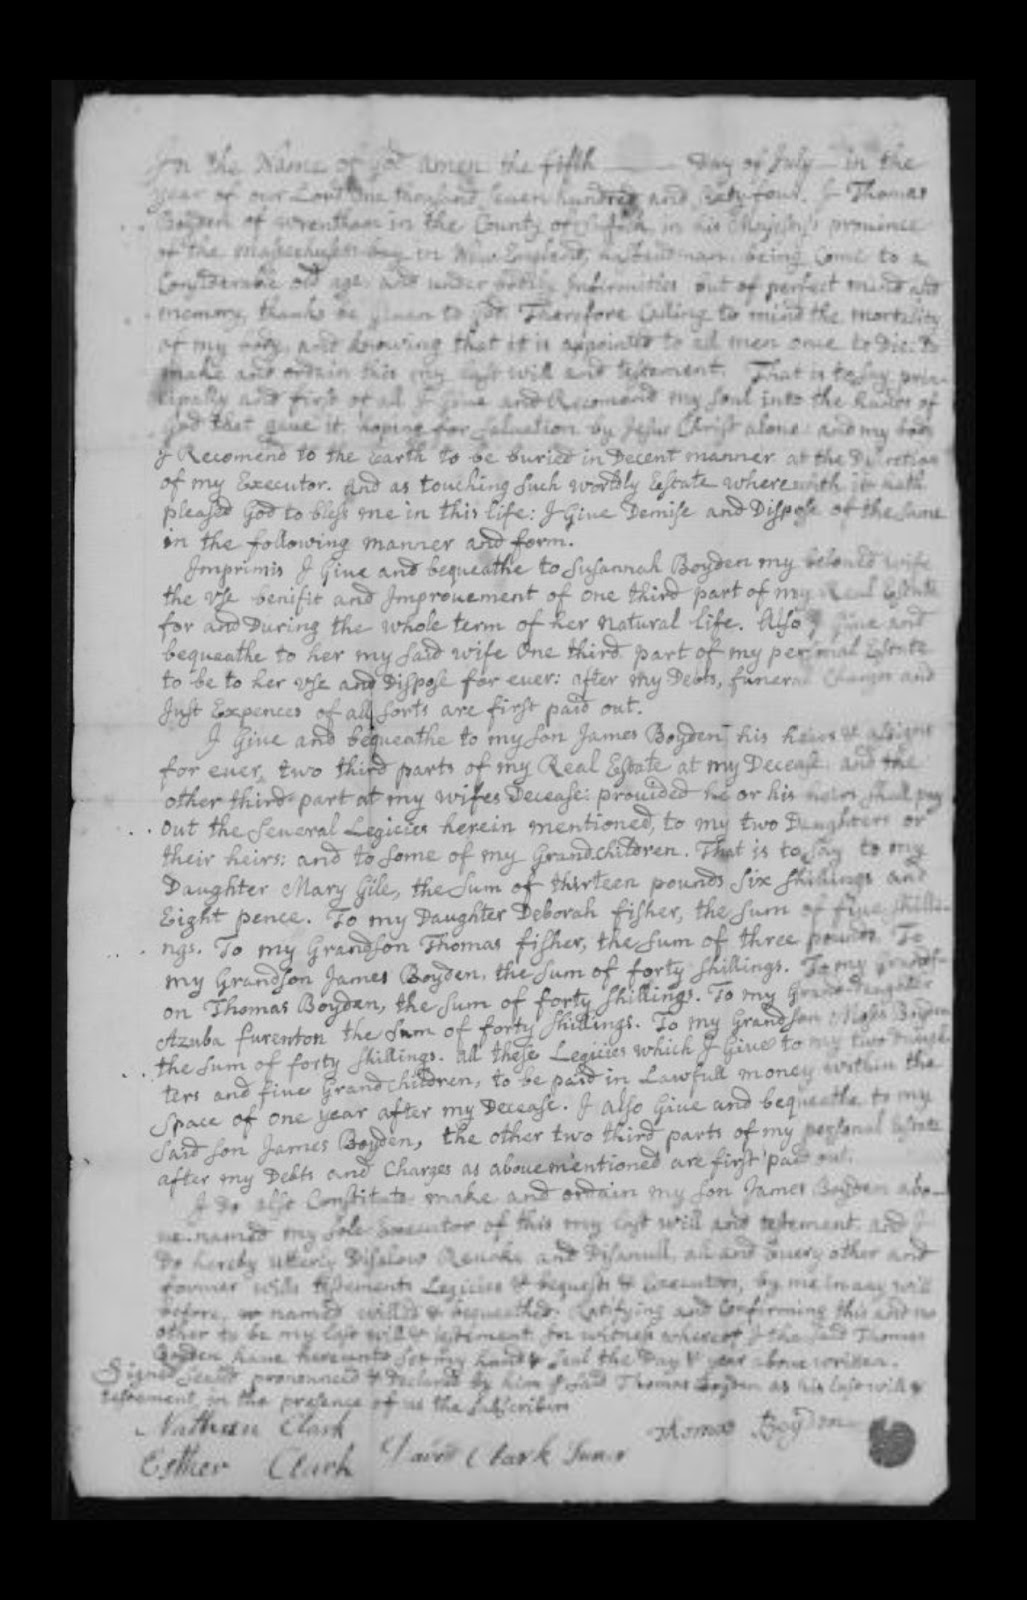 In the Name of God amen the fifth Day of July in the
year of our Lord One thousand seven hundred and sixty four. I Thomas
Boyden of wrentham in the County of Suffolk in his Majestys prouience
of the massechusets bay in New England, husbandman, being Come to a
Considerable old age and under bodily Infirmities but of perfect mind and
memory, thanks be giuen to God. Therefore Calling to mind the mortality
of my body, and knowing that it is appointed to all men once to Die: Do
make and ordain this my last will and testement. That is to say prin-
cipally and first of all I Giue and Recomend my Soul into the hands of
God that gaue it, hoping for Saluation by Jesus Christ alone: and my body
I Recomend to the Earth to be buried in Decent manner at the Discretion
of my Executor. And as touching Such worldly Estate wherewith it hath
pleased God to bless me in this life: I Giue Demise and Dispose of the Same
in the following manner and form.
Imprimis I Giue and bequeathe to Susannah Boyden my beloued wife
the Vse benifit and Improuement of one third part of my Real Estate
for and During the whole term of her natural life. Also I giue and
bequeathe to her my Said wife One third part of my personal Estate
to be to her vse and Dispose for euer: after my Debts, funeral Charges and
Just Expences of all Sorts are first paid out.
I Giue and bequeathe to my Son James Boyden his heirs & asigns
for euer, two third parts of my Real Estate at my Decease: and the
other third part at my wifes Decease: prouided he or his heirs shall pay
out the Seueral Legicies herein mentioned, to my two Daughters or
their heirs: and to Some of my Grandchildren. That is to say to my
Daughter Mary Gile, the Sum of thirteen pounds Six Shillings and
Eight pence. To my Daughter Deborah fisher, the Sum of fiue shilli-
ngs. To my Grandson Thomas fisher, the Sum of three pounds. To
my Grandson James Boyden, the Sum of forty Shillings. To my Grands-
on Thomas Boyden, the Sum of forty Shillings. To my Grand Daughter
Azuba furenton the Sum of forty Shillings. To my Grandson Moses Boyden
the Sum of forty Shillings. all these Legicies which I Giue to my two Daugh-
ters and fiue Grandchildren, to be paid in Lawfull money within the
Space of one year after my Decease. I also Giue and bequeathe to my
Said Son James Boyden, the other two third parts of my personal Estate
after my Debts and Charges as abouementioned are first paid out.
I Do also Constitute make and ordain my Son James Boyden abo-
ue named my Sole Executor of this my last will and testement. and I
Do hereby utterly Disalow Reuoke and Disanull, all and Euery other and
former wills testements Legicies & bequests & Executors, by me in any wise
before, named willed & bequeathed. Ratifying and Confirming this and no
other to be my last will & testement In witness whereof I the Said Thomas
Boyden haue hereunto Set my hand & Seal the Day & year aboue written.
Signed Sealed pronounced & Declared by him Said Thomas Boyden as his last will &
testement, in the presence of us the Subscribers
Nathan Clark Thomas Boyden
Esther Clark Dauid Clark Junr